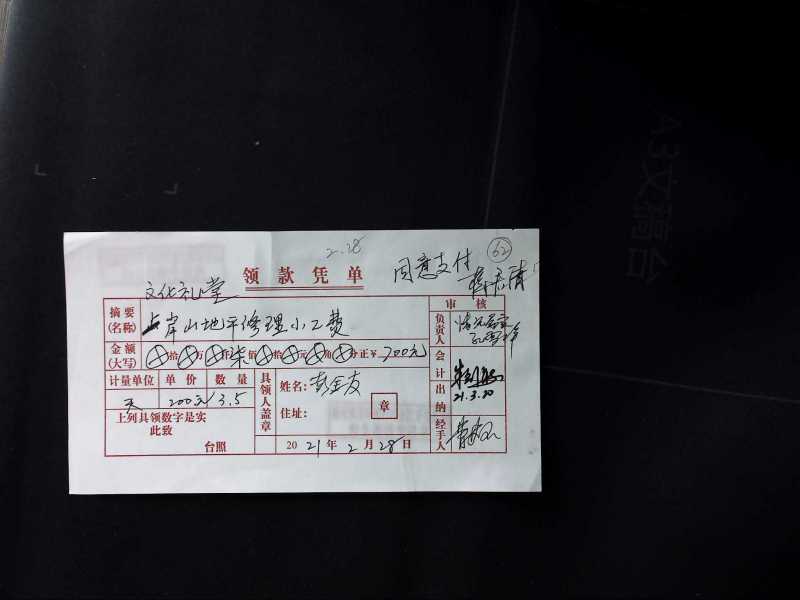 2.28
62
领款凭单
同意支付
文化礼堂
摘要
(名称)
岸山地平修理小工费
审核
负责人
情况属实
金额
(大写)
拾 万 仟 柒佰 拾 元 角 分正¥ 700元
会计
计量单位 单价 数量
天 200元/ 3.5
具领人盖章
姓名:彭金友
住址:
章
出纳
21.3.20
上列具领数字是实
此致
台照
2021年2月28日
经手人
A3文稿台